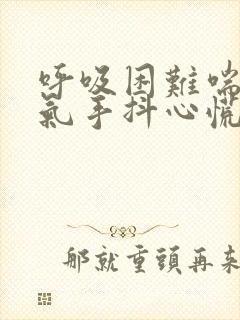 呼吸困難喘
氣手抖心慌
那就重頭再來